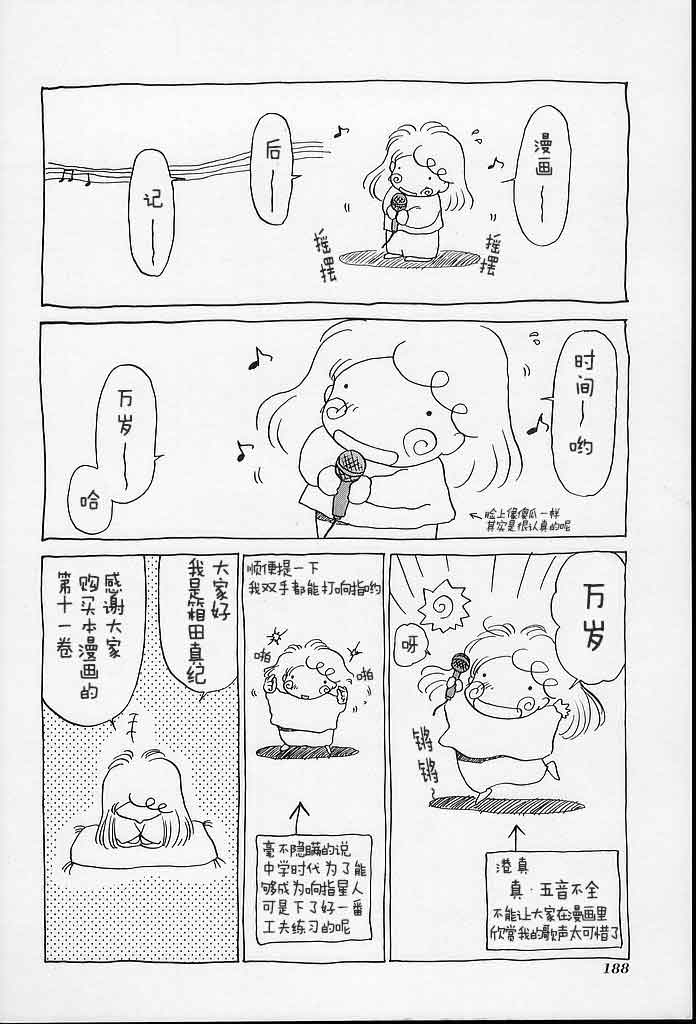 漫画～
摇摆
摇摆
后～
记～
时间～哟
脸上像傻瓜一样
其实是很认真的呢
万岁～
哈
万岁
呀
锵锵～
港真
真·五音不全
不能让大家在漫画里
欣赏我的歌声太可惜了
顺便提一下
我双手都能打响指哟
啪
啪
毫不隐瞒的说
中学时代为了能
够成为响指星人
可是下了好一番
工夫练习的呢
大家好
我是箱田真纪
感谢大家
购买本漫画的
第十一卷
188